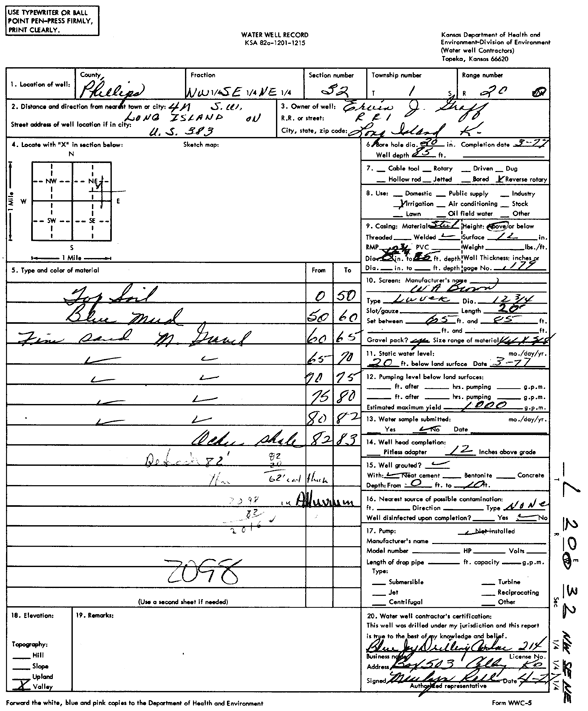 USE TYPEWRITER OR BALL
POINT PEN-PRESS FIRMLY,
PRINT CLEARLY.
WATER WELL RECORD
KSA 82a-1201-1215
Kansas Department of Health and
Environment-Division of Environment
(Water well Contractors)
Topeka, Kansas 66620
1. Location of well: County Phillips Fraction NW 1/4 SE 1/4 NE 1/4 Section number 32 Township number T 1 S Range number R 20
2. Distance and direction from nearest town or city: 4M S.W.
LONG ISLAND ON
Street address of well location if in city: U.S. 383
3. Owner of well: Ervin J.
R.R. or street: RR1
City, state, zip code: Long Island K.
4. Locate with "X" in section below: Sketch map:
N
NW NE
W E
SW SE
S
1 Mile
1 Mile
6. Bore hole dia. 30 in. Completion date 3-77
Well depth 85 ft.
7. Cable tool Rotary Driven Dug
Hollow rod Jetted Bored X Reverse rotary
8. Use: Domestic Public supply Industry
X Irrigation Air conditioning Stock
Lawn Oil field water Other
9. Casing: Material Steel Height: Above or below
Threaded Welded ✓ Surface 12 in.
RMP PVC Weight lbs./ft.
Dia. in. to ft. depth Wall Thickness: inches or
Dia. in. to ft. depth gage No. .179
5. Type and color of material From To
Top Soil 0 50
Blue Mud 50 60
Fine sand M. Gravel 60 65
✓ ✓ 65 70
✓ ✓ 70 75
✓ ✓ 75 80
✓ ✓ 80 82
Ocher shale 82 83
82'
82
20
62' sat thick
2098 in Alluvium
82
2016
2098
(Use a second sheet if needed)
10. Screen: Manufacturer's name
W A Brown
Type Louver Dia. 12 3/4
Slot/gauze Length 20'
Set between 65 ft. and 85 ft.
ft. and ft.
Gravel pack? yes Size range of material
11. Static water level: mo./day/yr.
20 ft. below land surface Date 3-77
12. Pumping level below land surfaces:
ft. after hrs. pumping g.p.m.
ft. after hrs. pumping g.p.m.
Estimated maximum yield 1000 g.p.m.
13. Water sample submitted: mo./day/yr.
Yes ✓ No Date
14. Well head completion:
Pitless adapter 12 Inches above grade
15. Well grouted? ✓
With: ✓ Neat cement Bentonite Concrete
Depth: From 0 ft. to 10 ft.
16. Nearest source of possible contamination:
ft. Direction Type NONE
Well disinfected upon completion? Yes ✓ No
17. Pump: ✓ Not installed
Manufacturer's name
Model number HP Volts
Length of drop pipe ft. capacity g.p.m.
Type:
Submersible Turbine
Jet Reciprocating
Centrifugal Other
18. Elevation:
Topography:
Hill
Slope
Upland
X Valley
19. Remarks:
20. Water well contractor's certification:
This well was drilled under my jurisdiction and this report
is true to the best of my knowledge and belief.
Blue Jay Drilling 214
Business name License No.
Address Box 503 Ks
Signed Date 4-77
Authorized representative
T 1 R 20 E Sec 32 1/4 1/4 1/4 NW SE NE
Forward the white, blue and pink copies to the Department of Health and Environment
Form WWC-5